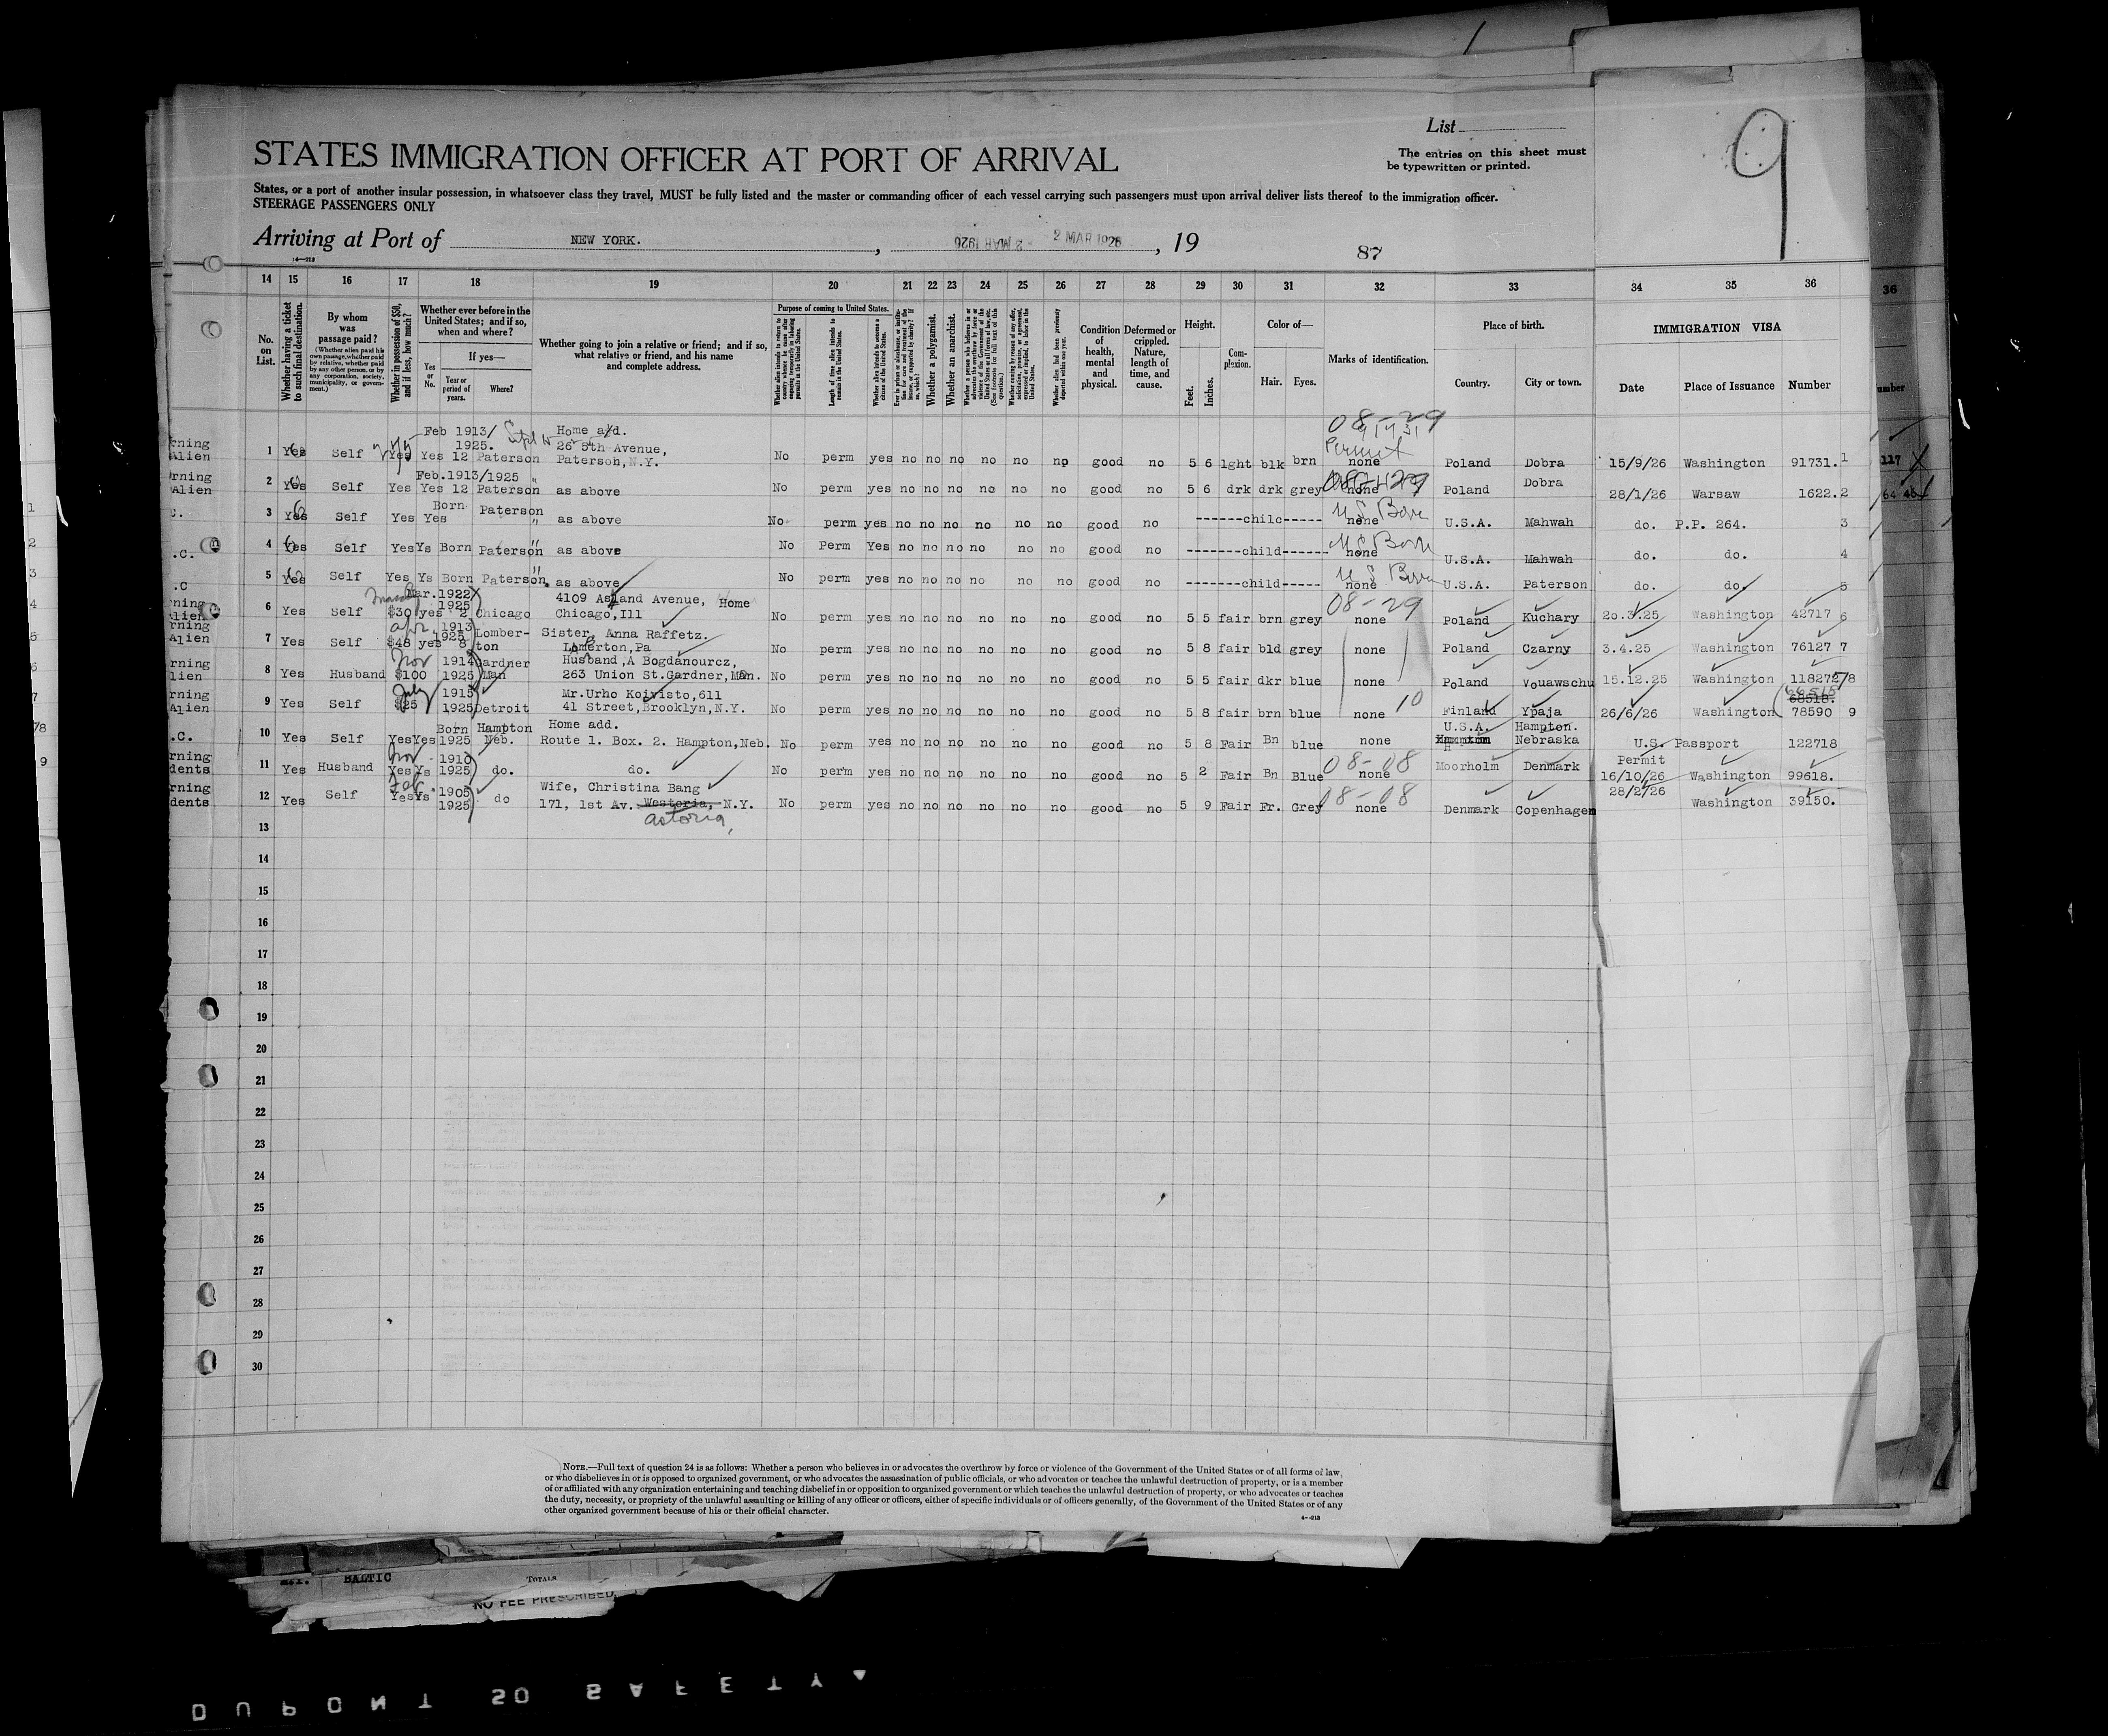 List
The entries on this sheet must
be typewritten or printed.
9
STATES IMMIGRATION OFFICER AT PORT OF ARRIVAL
States, or a port of another insular possession, in whatsoever class they travel, MUST be fully listed and the master or commanding officer of each vessel carrying such passengers must upon arrival deliver lists thereof to the immigration officer.
STEERAGE PASSENGERS ONLY
Arriving at Port of NEW YORK. , 2 MAR 1926 2 MAR 1926 , 19
87
14 15 16 17 18 19 20 21 22 23 24 25 26 27 28 29 30 31 32 33 34 35 36
No. on List.
Whether having a ticket to such final destination.
By whom was passage paid?
(Whether alien paid his own passage, whether paid by relative, whether paid by any other person, or by any corporation, society, municipality, or government.)
Whether in possession of $50, and if less, how much?
Whether ever before in the United States; and if so, when and where?
Yes or No.
If yes—
Year or period of years.
Where?
Whether going to join a relative or friend; and if so, what relative or friend, and his name and complete address.
Purpose of coming to United States.
Length of time alien intends to remain in the United States.
Whether alien intends to become a citizen of the United States.
Whether a polygamist.
Whether an anarchist.
Condition of health, mental and physical.
Deformed or crippled. Nature, length of time, and cause.
Height.
Feet. Inches.
Complexion.
Color of—
Hair. Eyes.
Marks of identification.
Place of birth.
Country. City or town.
IMMIGRATION VISA
Date Place of Issuance Number
Feb 1913/ Home a/d. 08-29
1925. Sept 26 5th Avenue, Permit
1 Yes Self Yes Yes 12 Paterson Paterson, N.Y. No perm yes no no no no no no good no 5 6 lght blk brn none Poland Dobra 15/9/26 Washington 91731. 1
Feb.1913/1925 "
2 Yes Self Yes Yes 12 Paterson as above No perm yes no no no no no no good no 5 6 drk drk grey none Poland Dobra 28/1/26 Warsaw 1622. 2
Born Paterson U S Born
3 Yes Self Yes Yes " as above No perm yes no no no no no no good no ------chilc----- none U.S.A. Mahwah do. P.P. 264. 3
4 Yes Self Yes Ys Born Paterson as above No Perm Yes no no no no no no good no -------child------ none U S Born U.S.A. Mahwah do. do. 4
5 Yes Self Yes Ys Born Paterson. as above No perm yes no no no no no no good no -------child----- none U S Born U.S.A. Paterson do. do. 5
Mar.1922 4109 Asland Avenue, Home 08-29
6 Yes Self $30 yes 1925 2 Chicago Chicago,Ill No perm yes no no no no no no good no 5 5 fair brn grey none Poland Kuchary 20.3.25 Washington 42717 6
Apr. 1913 Lomber- Sister, Anna Raffetz.
7 Yes Self $48 yes 1925 8 ton Lomerton,Pa No perm yes no no no no no no good no 5 8 fair bld grey none Poland Czarny 3.4.25 Washington 76127 7
Nov 1914 Gardner Husband,A Bogdanourcz,
8 Yes Husband $100 1925 Man 263 Union St.Gardner,Man. No perm yes no no no no no no good no 5 5 fair dkr blue none Poland Vouawschu 15.12.25 Washington 118272/8
July 1915 Mr.Urho Koivisto,611 10 68515.
9 Yes Self $25 1925 Detroit 41 Street,Brooklyn,N.Y. No perm yes no no no no no no good no 5 8 fair brn blue none Finland Ypaja 26/6/26 Washington 78590 9
Born Hampton Home add. U.S.A. Hampton.
10 Yes Self Yes Yes 1925 Neb. Route 1. Box. 2. Hampton,Neb. No perm yes no no no no no no good no 5 8 Fair Bn blue none Nebraska U.S. Passport 122718
Nov 1910 08-08 Permit
11 Yes Husband Yes Ys 1925 do. do. No perm yes no no no no no no good no 5 2 Fair Bn Blue none Moorholm Denmark 16/10/26 Washington 99618.
Feb 1905 Wife, Christina Bang 08-08 28/2/26
12 Yes Self Yes Ys 1925 do 171, 1st Av. Westoria, N.Y. No perm yes no no no no no no good no 5 9 Fair Fr. Grey none Denmark Copenhagen Washington 39150.
astoria,
13
14
15
16
17
18
19
20
21
22
23
24
25
26
27
28
29
30
NOTE.—Full text of question 24 is as follows: Whether a person who believes in or advocates the overthrow by force or violence of the Government of the United States or of all forms of law,
or who disbelieves in or is opposed to organized government, or who advocates the assassination of public officials, or who advocates or teaches the unlawful destruction of property, or is a member
of or affiliated with any organization entertaining and teaching disbelief in or opposition to organized government or which teaches the unlawful destruction of property, or who advocates or teaches
the duty, necessity, or propriety of the unlawful assaulting or killing of any officer or officers, either of specific individuals or of officers generally, of the Government of the United States or of any
other organized government because of his or their official character.
BALTIC TOTALS
NO FEE PRESCRIBED
DUPONT SO SAFETY